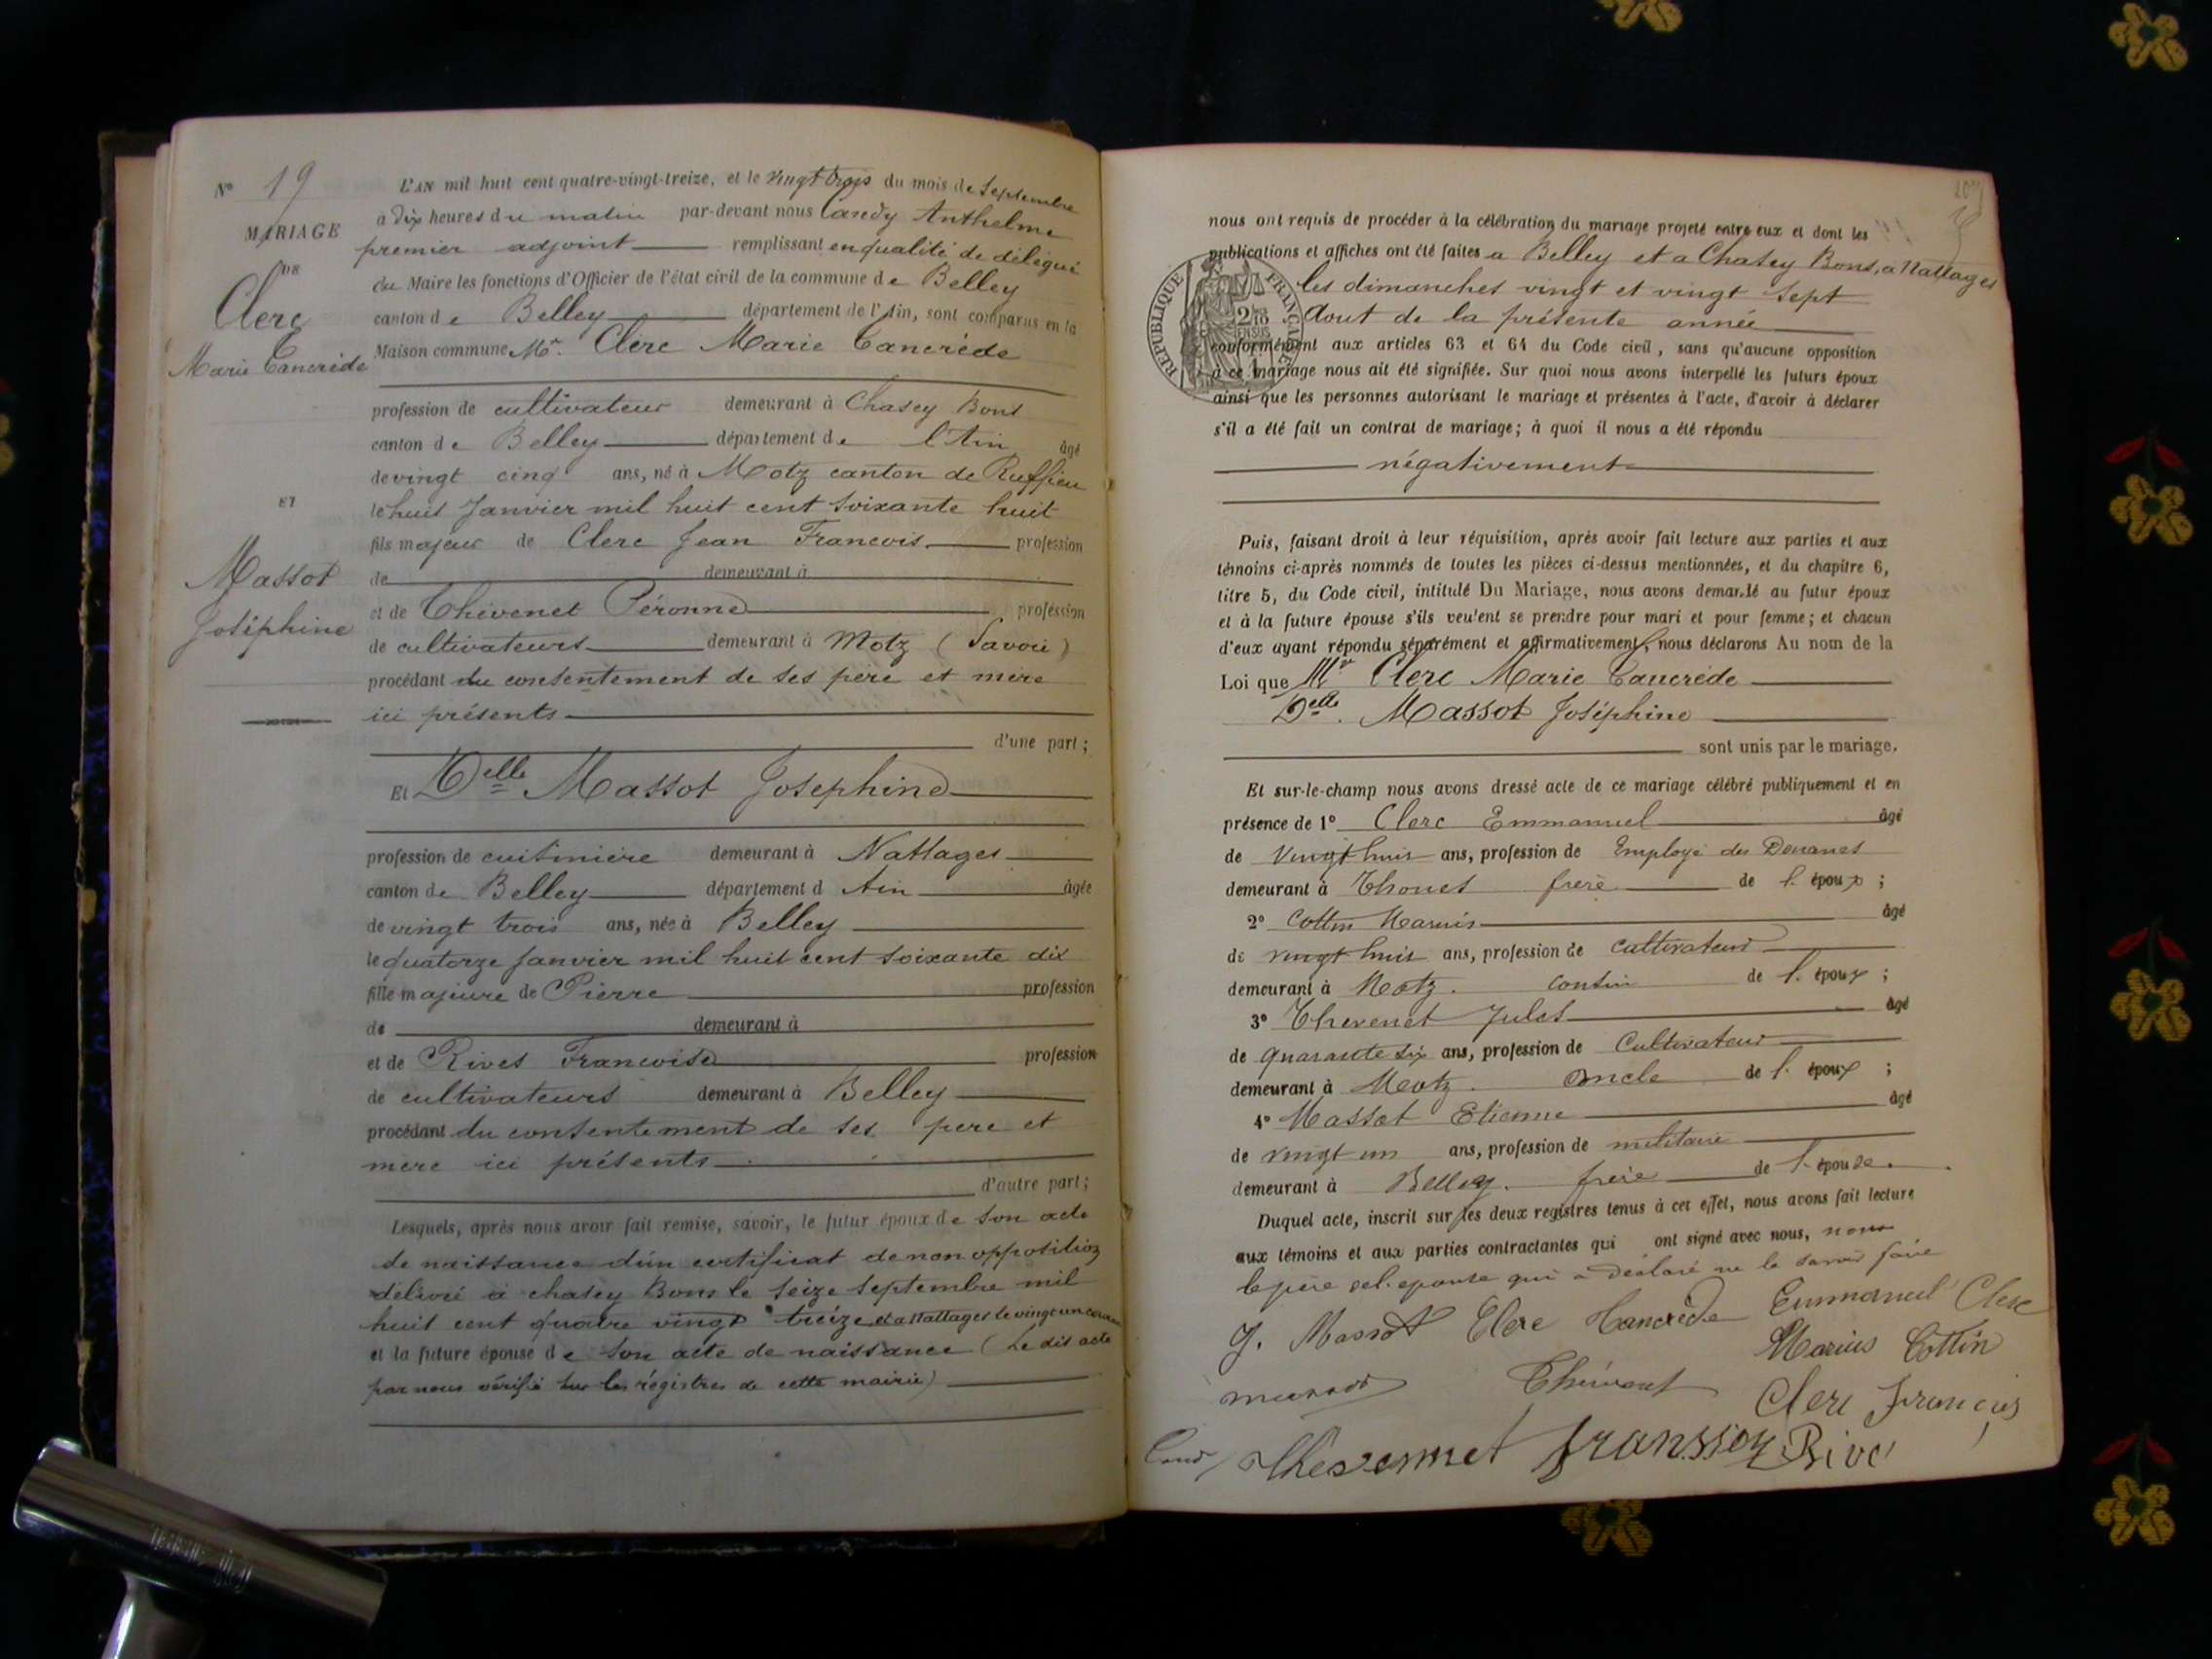 N° 19
MARIAGE
DE
Clerc
Marie Tancrède
ET
Massot
Joséphine
L'AN mil huit cent quatre-vingt-treize, et le vingt trois du mois de Septembre
à dix heures du matin par-devant nous Canedy Anthelme
premier adjoint remplissant en qualité de délégué
du Maire les fonctions d'Officier de l'état civil de la commune de Belley
canton de Belley département de l'Ain, sont comparus en la
Maison commune Mr. Clerc Marie Tancrède
profession de cultivateur demeurant à Chasey Bons
canton de Belley département de l'Ain âgé
de vingt cinq ans, né à Motz canton de Ruffieu
le huit Janvier mil huit cent soixante huit
fils majeur de Clerc Jean Francois profession
de demeurant à
et de Thévenet Péronne profession
de cultivateurs demeurant à Motz (Savoie)
procédant du consentement de ses père et mère
ici présents
d'une part;
Et Delle Massot Josephine
profession de cuisinière demeurant à Nattages
canton de Belley département d Ain âgée
de vingt trois ans, née à Belley
le quatorze Janvier mil huit cent soixante dix
fille majeure de Pierre profession
de demeurant à
et de Rives Francoise profession
de cultivateurs demeurant à Belley
procédant du consentement de ses père et
mère ici présents
d'autre part;
Lesquels, après nous avoir fait remise, savoir, le futur époux de son acte
de naissance d'un certificat de non opposition
délivré à chasey Bons le seize septembre mil
huit cent quatre vingt treize et a Nattages le vingt un courant
et la future épouse de son acte de naissance (Le dit acte
par nous vérifié sur les régistres de cette mairie)
nous ont requis de procéder à la célébration du mariage projeté entre eux et dont les
publications et affiches ont été faites a Belley et a Chasey Bons, a Nattages
les dimanches vingt et vingt sept
Aout de la présente année
REPUBLIQUE FRANÇAISE
2/10 EN SUS
conformément aux articles 63 et 64 du Code civil, sans qu'aucune opposition
à ce mariage nous ait été signifiée. Sur quoi nous avons interpellé les futurs époux
ainsi que les personnes autorisant le mariage et présentes à l'acte, d'avoir à déclarer
s'il a été fait un contrat de mariage; à quoi il nous a été répondu
négativement
Puis, faisant droit à leur réquisition, après avoir fait lecture aux parties et aux
témoins ci-après nommés de toutes les pièces ci-dessus mentionnées, et du chapitre 6,
titre 5, du Code civil, intitulé Du Mariage, nous avons demandé au futur époux
et à la future épouse s'ils veulent se prendre pour mari et pour femme; et chacun
d'eux ayant répondu séparément et affirmativement, nous déclarons Au nom de la
Loi que Mr Clerc Marie Tancrède
Delle. Massot Joséphine
sont unis par le mariage.
Et sur-le-champ nous avons dressé acte de ce mariage célébré publiquement et en
présence de 1° Clerc Emmanuel âgé
de vingt huit ans, profession de Employé des Douanes
demeurant à Thonet frère de l'époux;
2° Cottin Marius âgé
de vingt huit ans, profession de cultivateur
demeurant à Motz. cousin de l'époux;
3° Thevenet Jules âgé
de quarante six ans, profession de Cultivateur
demeurant à Motz. oncle de l'époux;
4° Massot Etienne âgé
de vingt un ans, profession de militaire
demeurant à Belley. frère de l'épouse.
Duquel acte, inscrit sur les deux registres tenus à cet effet, nous avons fait lecture
aux témoins et aux parties contractantes qui ont signé avec nous, non
le père de l'epouse qui a déclaré ne le savoir faire
J. Massot Clerc Tancrède Emmanuel Clerc
Marius Cottin
Thévenet Clerc François
Thevennet franssoy Rive